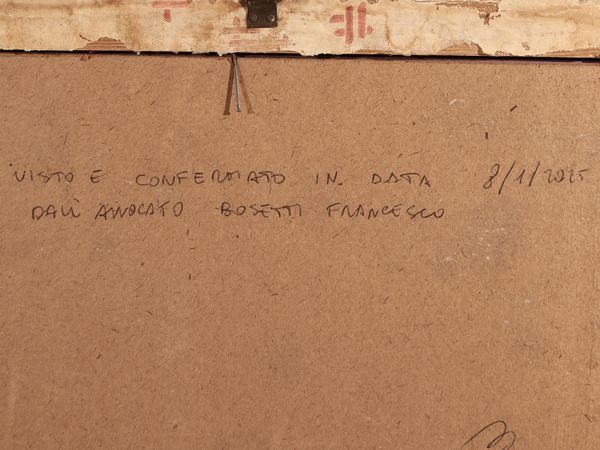 VISTO E CONFERMATO IN DATA 8/1/2025
DALL'AVVOCATO BOSETTI FRANCESCO